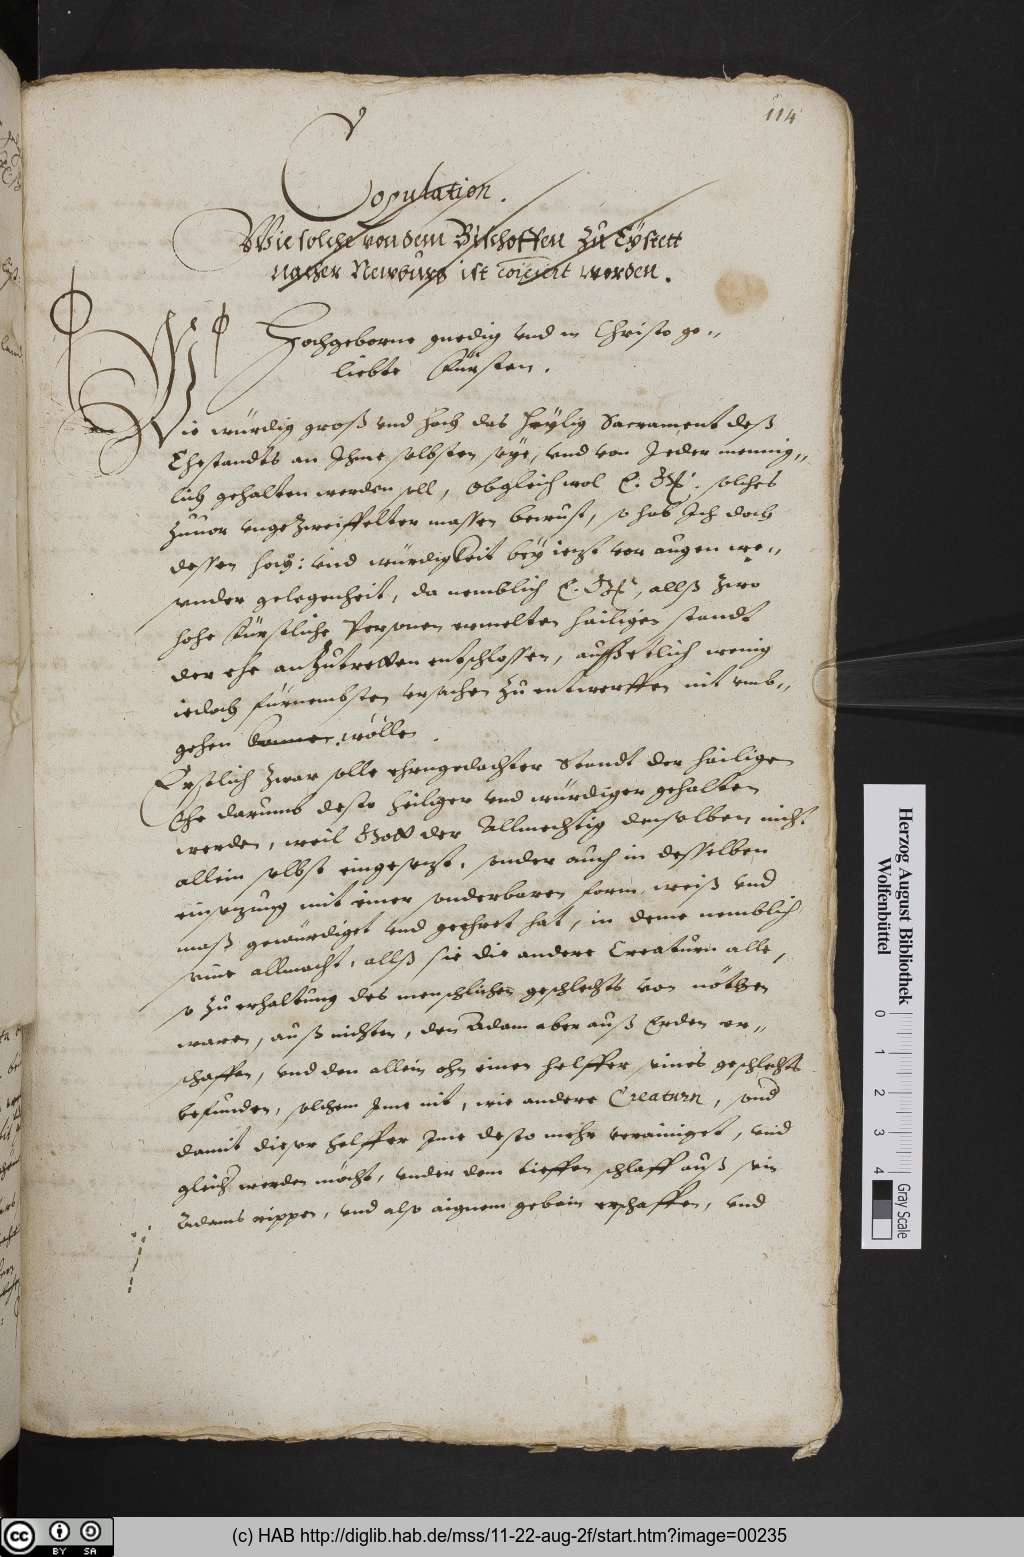 114
Copulation.
Wie solche von dem Bischoffen zu Eystett
nacher Newburg ist worden.
Hochgeborne gnedig vnd in Christo ge-
liebte Fürsten.
Wie würdig groß vnd hoch das heylig Sacrament deß
Ehestandts an Ihme selbsten seye, vnd von Jeder mennig-
lich gehalten werden soll, Obgleich wol E. solches
zuuor vngezweiffelter massen bewust, so hab Ich doch
dessen hoch: vnd würdigkeit bey ietzt vor augen we-
sender gelegenheit, da nemblich E. allß zwo
hohe Fürstliche Personen ermelten hailigen standt
der ehe anzutretten entschlossen, auß etlich wenig
iedoch fürnembsten vrsachen zu entwerffen nit vmb-
gehen wöllen.
Erstlich zwar solle ehrngedachter Standt der hailigen
Ehe darumb desto heiliger vnd würdiger gehalten
werden, weil Gott der Allmechtig denselben nicht
allein selbst eingesezt, sonder auch in desselben
einsezung mit einer sonderbaren form, weiß vnd
maß gewürdiget vnd geehret hat, in deme nemblich
seine allmacht, allß sie die andere Creaturn alle,
so zu erhaltung des menschlichen geschlechts von nöthen
waren, auß nichten, den Adam aber auß Erden er-
schaffen, vnd den allein ohn einen helffer seines geschlechts
befunden, solchem Ime nit, wie andere Creaturn, sond
damit dieser helffer Ime desto mehr verainiget, vnd
gleich werden möcht, vnder dem tieffen schlaff auß sein
Adams rippen, vnd also aignem gebein erschaffen, vnd
Herzog August Bibliothek
Wolfenbüttel
0 1 2 3 4
Gray Scale
cc BY SA
(c) HAB http://diglib.hab.de/mss/11-22-aug-2f/start.htm?image=00235